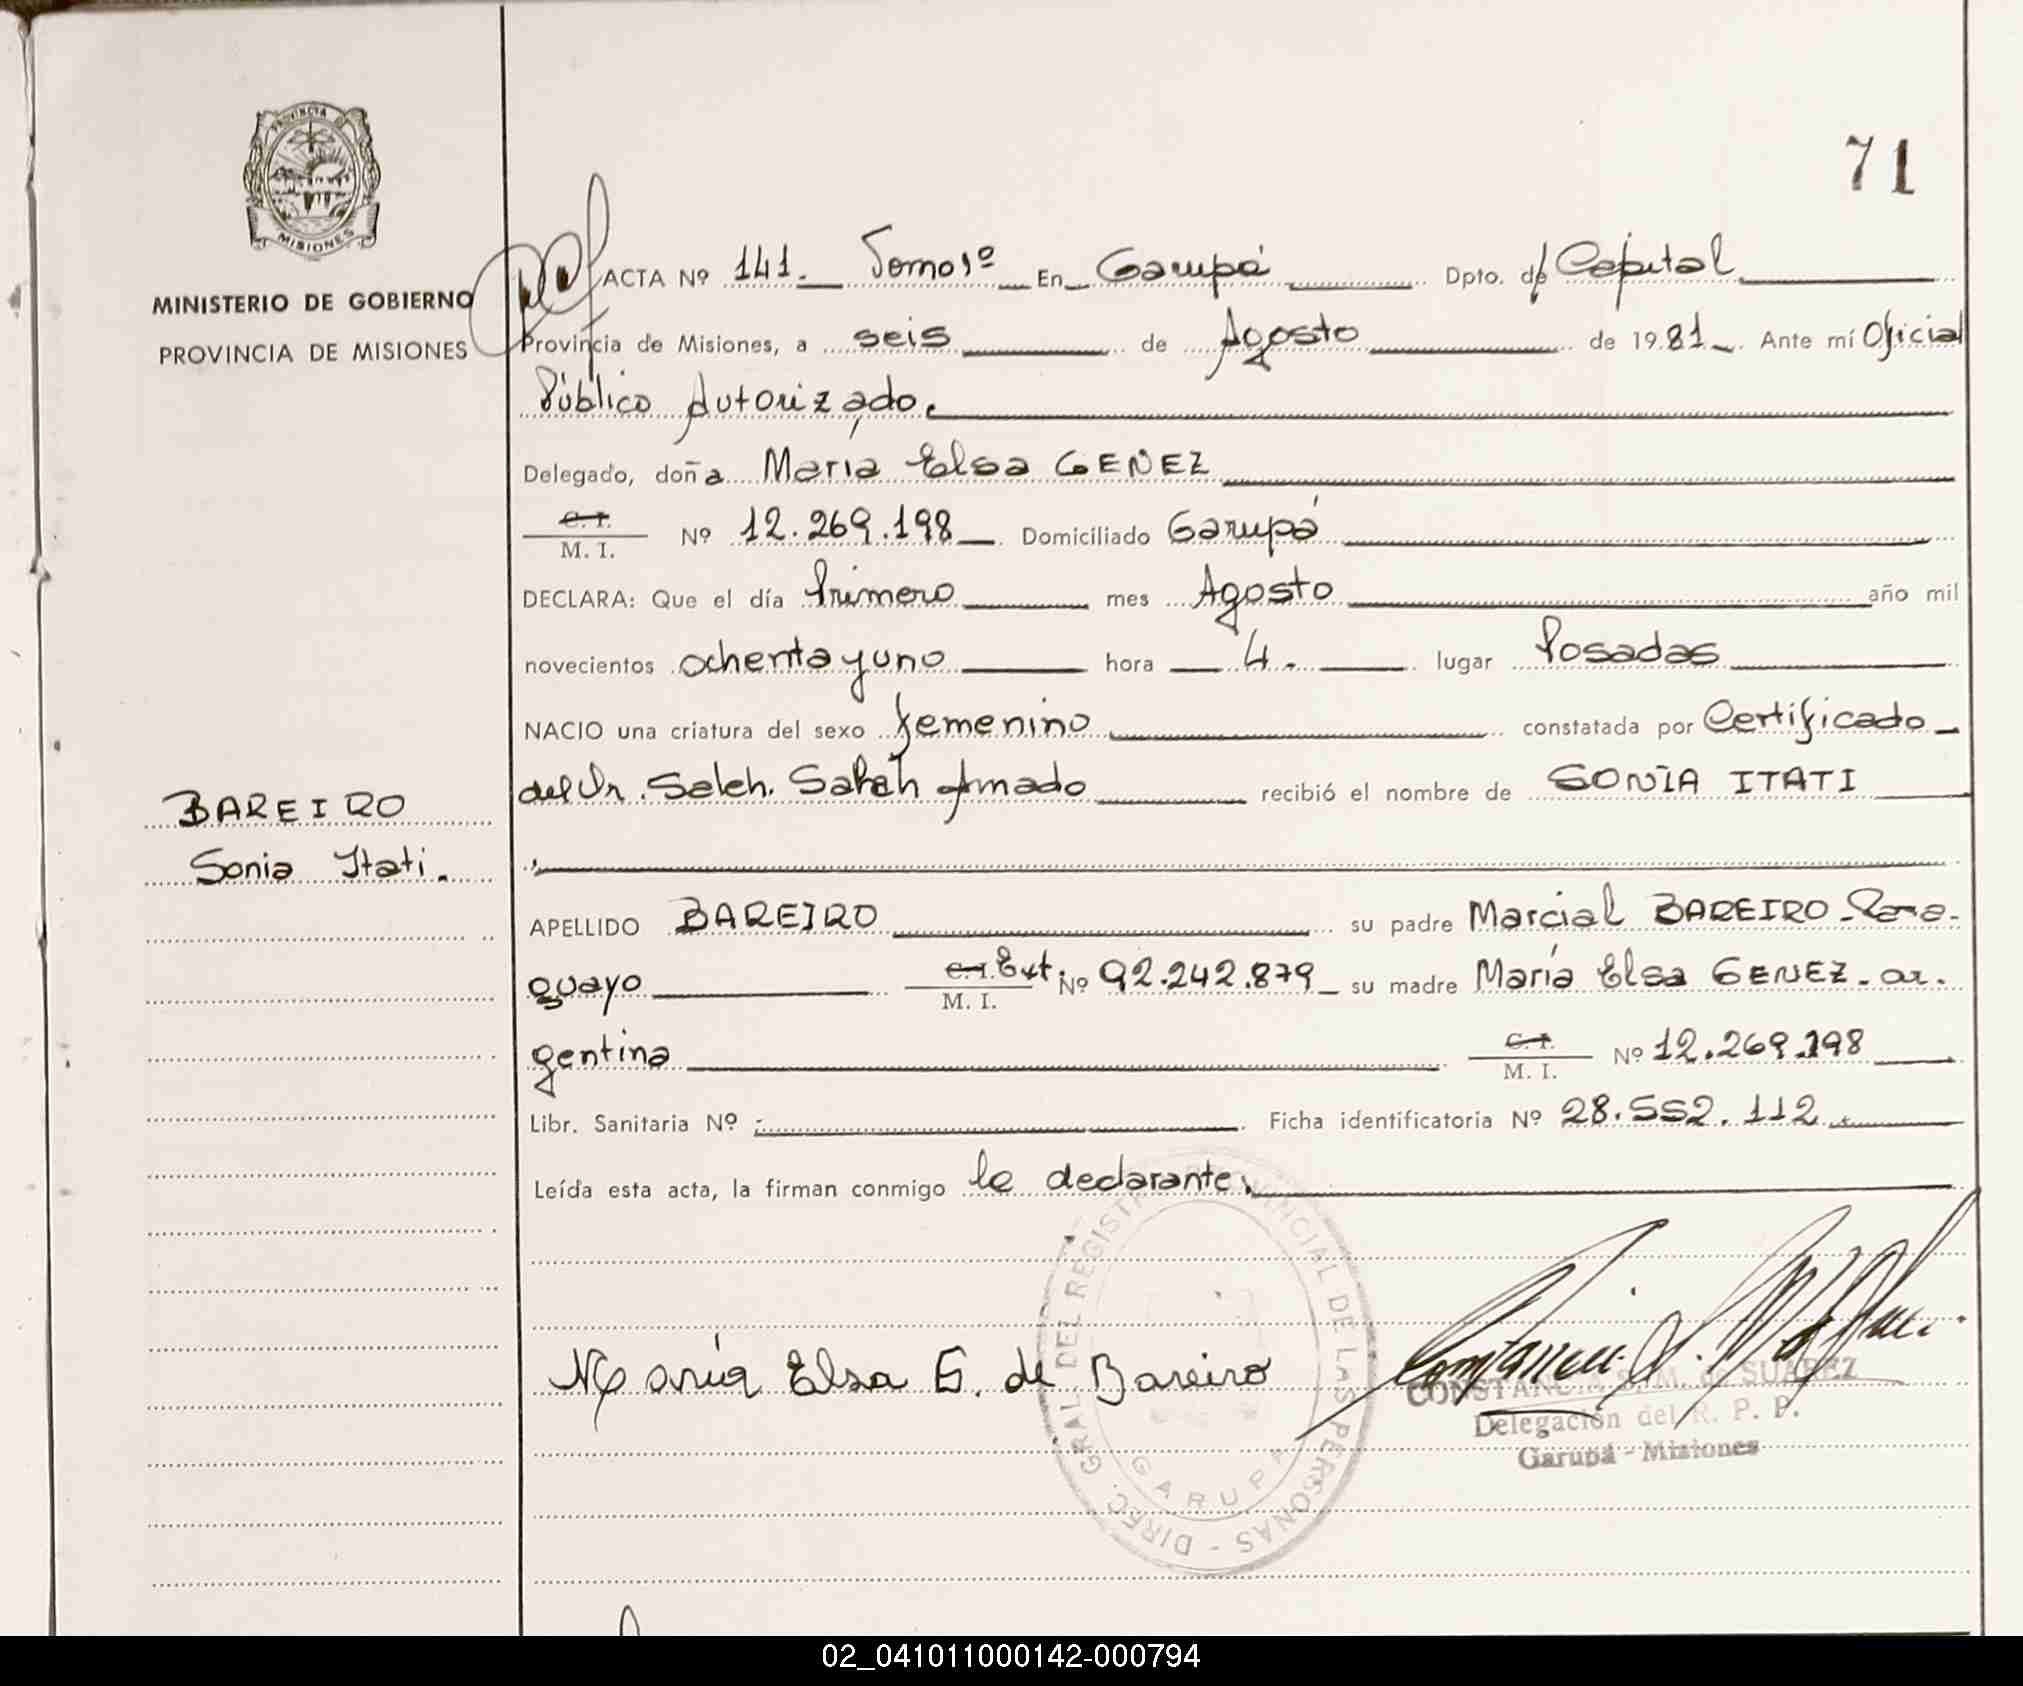 71
PROVINCIA DE
MISIONES
MINISTERIO DE GOBIERNO
PROVINCIA DE MISIONES
ACTA Nº 141. Tomo 1º En Garupá Dpto. de Capital
Provincia de Misiones, a seis de Agosto de 1981 Ante mí Oficial
Público Autorizado.
Delegado, doña María Elsa GENEZ
C. I.
M. I. Nº 12.269.198 Domiciliado Garupá
DECLARA: Que el día Primero mes Agosto año mil
novecientos ochenta y uno hora 4. lugar Posadas
NACIO una criatura del sexo femenino constatada por Certificado
del Dr. Saleh. Amado recibió el nombre de SONIA ITATI
BAREIRO
Sonia Itati.
APELLIDO BAREIRO su padre Marcial BAREIRO - Para-
guayo C.I. Ext M. I. Nº 92.242.879 su madre María Elsa GENEZ - ar.
gentina C. I. M. I. Nº 12.269.198
Libr. Sanitaria Nº Ficha identificatoria Nº 28.552.112
Leída esta acta, la firman conmigo la declarante.
María Elsa G. de Bareiro
DIREC. GRAL. DEL REGISTRO PROVINCIAL DE LAS PERSONAS -
GARUPA
CONSTANCIA S. M. de SUAREZ
Delegación del R. P. P.
Garupá - Misiones
02_041011000142-000794